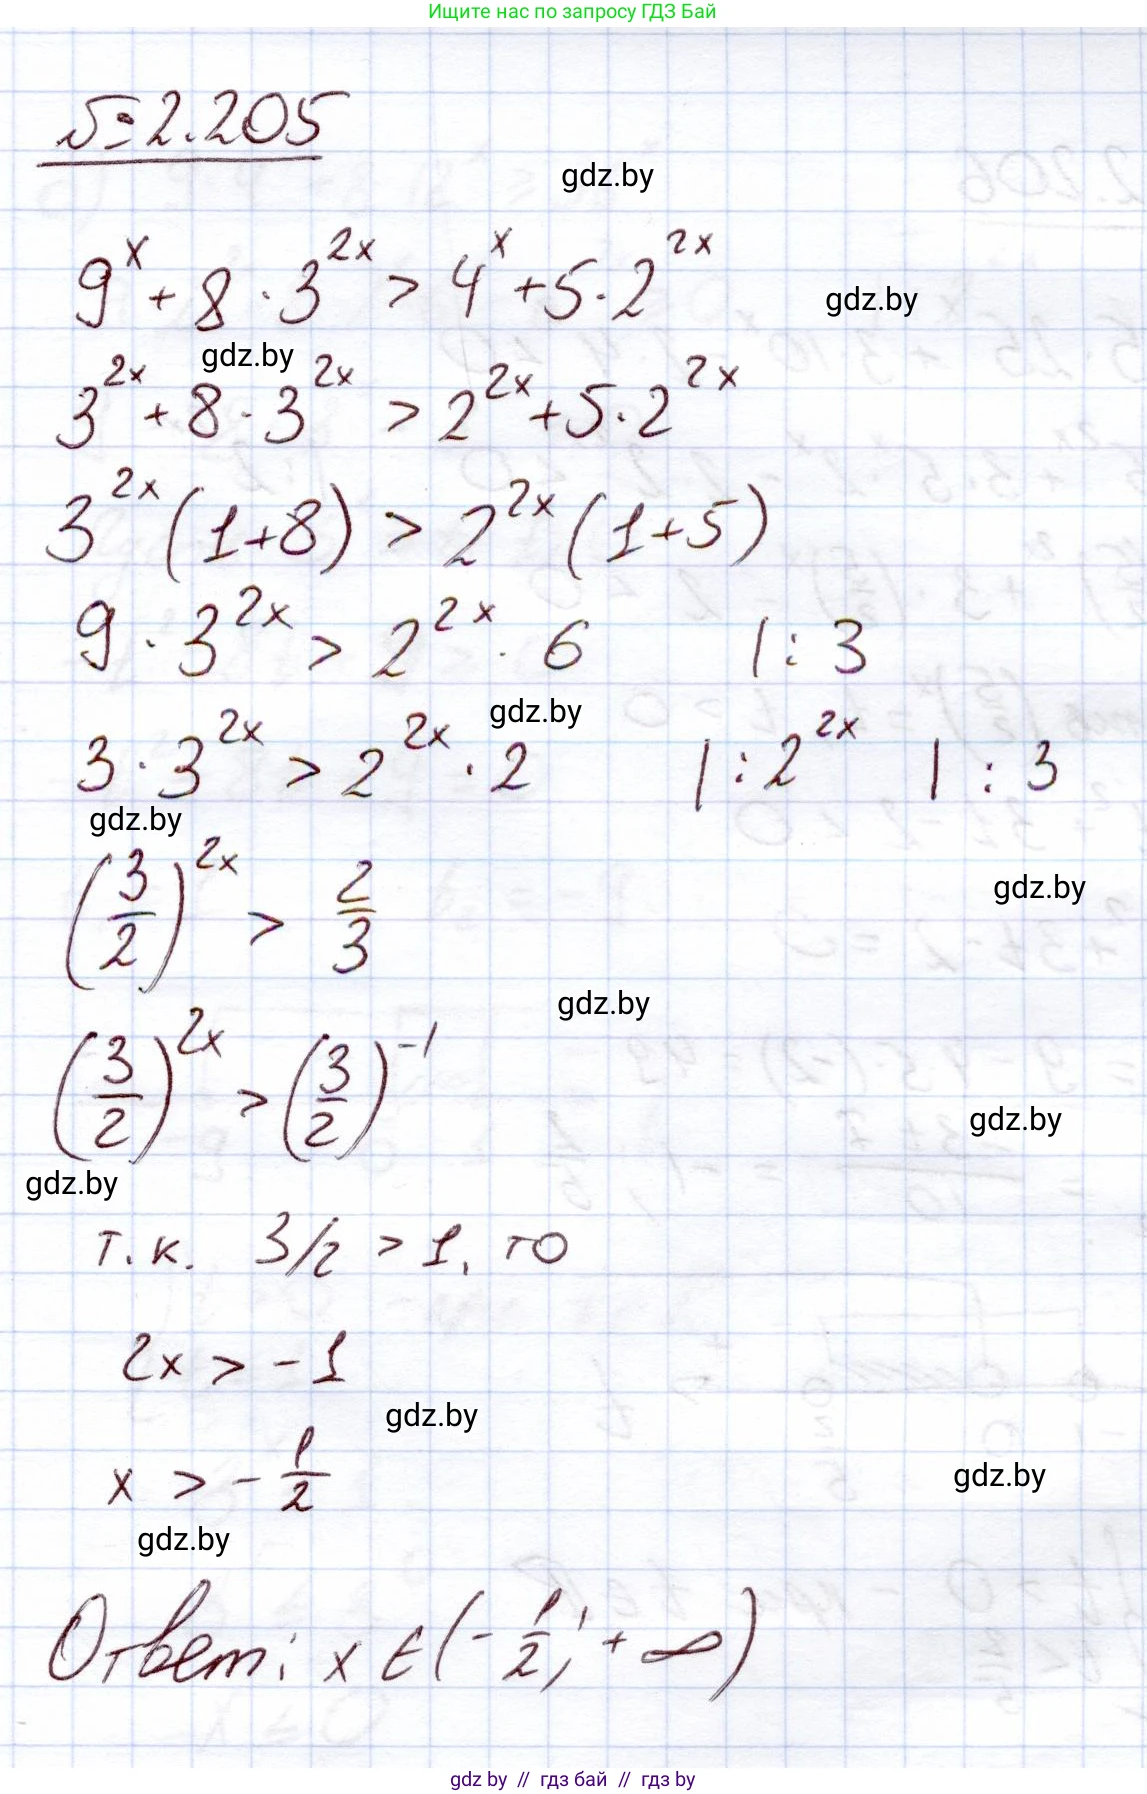 Ищите нас по запросу ГДЗ Бай
№ 2.205
gdz.by
9^x + 8 · 3^{2x} > 4^x + 5 · 2^{2x}
gdz.by
gdz.by
3^{2x} + 8 · 3^{2x} > 2^{2x} + 5 · 2^{2x}
3^{2x} (1+8) > 2^{2x} (1+5)
9 · 3^{2x} > 2^{2x} · 6 | : 3
gdz.by
3 · 3^{2x} > 2^{2x} · 2 | : 2^{2x} | : 3
gdz.by
(3/2)^{2x} > 2/3
gdz.by
gdz.by
(3/2)^{2x} > (3/2)^{-1}
gdz.by
gdz.by
т.к. 3/2 > 1, то
2x > -1
gdz.by
x > - 1/2
gdz.by
gdz.by
Ответ: x ∈ (- 1/2; + ∞)
gdz by // гдз бай // гдз by